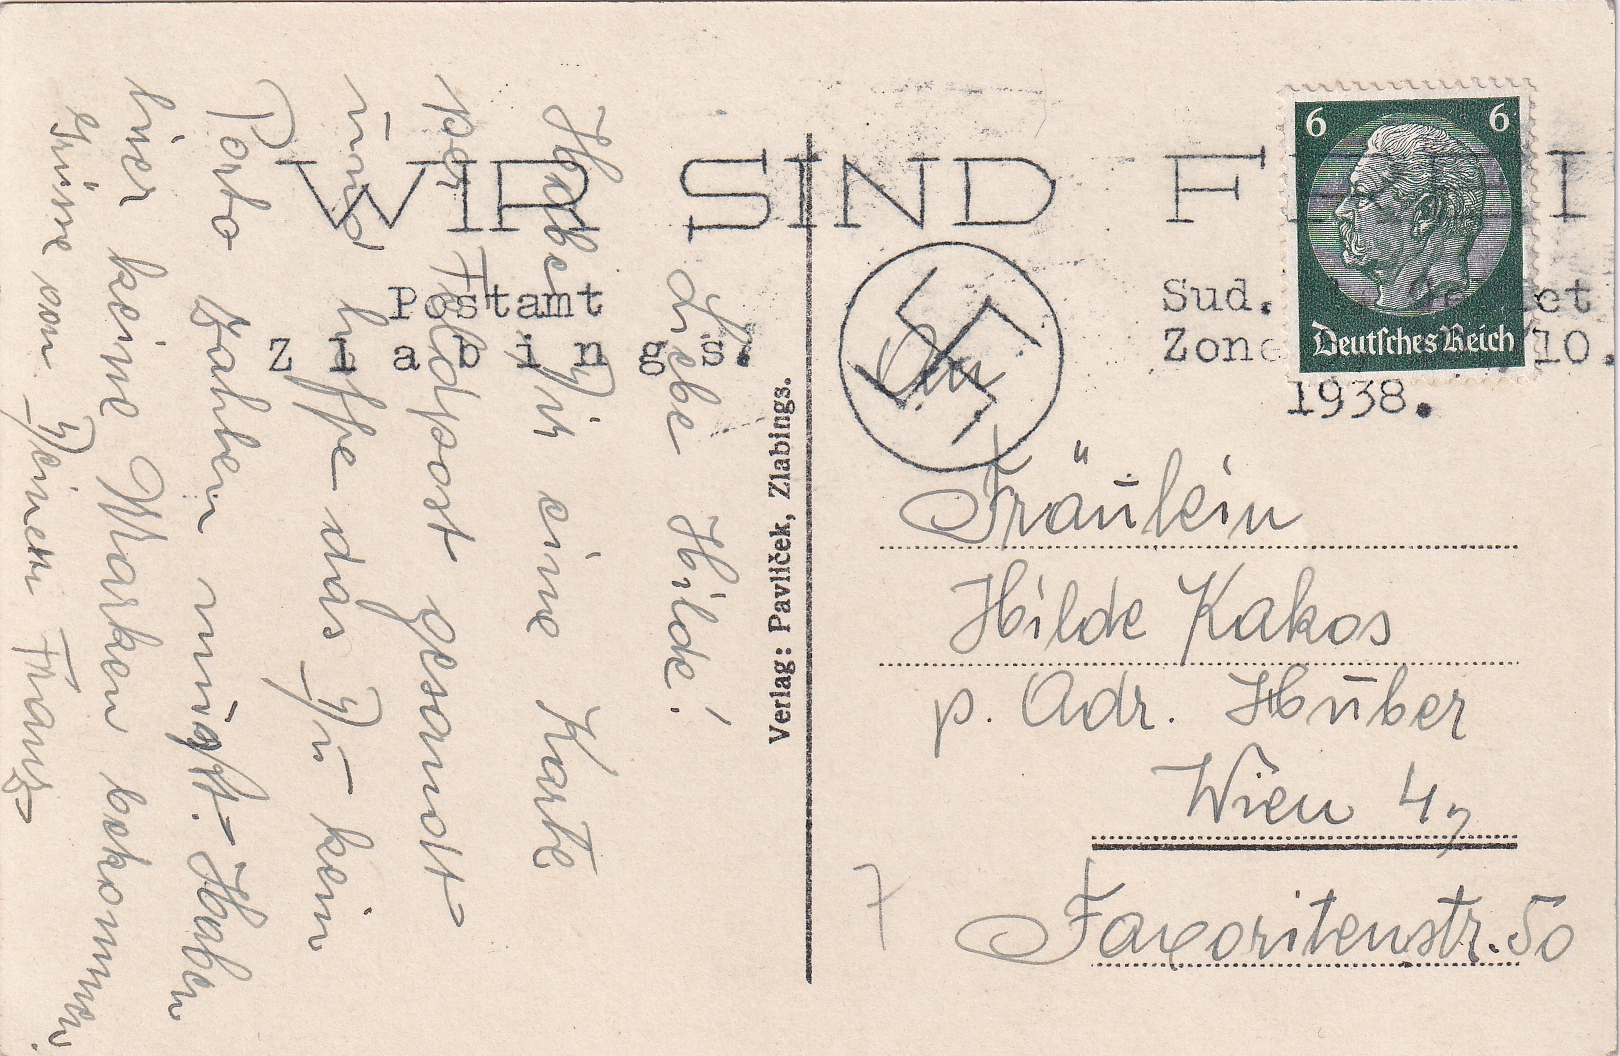 WIR SIND F I
Postamt
Zlabings.
Sud.
Zone 10.
1938.
6 6
Deutsches Reich
An
Fräulein
Hilde Kakos
p. Adr. Huber
Wien 4,
Favoritenstr. 50
7
Verlag: Pavlíček, Zlabings.
Liebe Hilde!
Habe Dir eine Karte
per Feldpost gesandt
und hoffe das Du kein
Porto zahlen mußt. Haben
hier keine Marken bekommen.
Grüsse von Deinem Franz